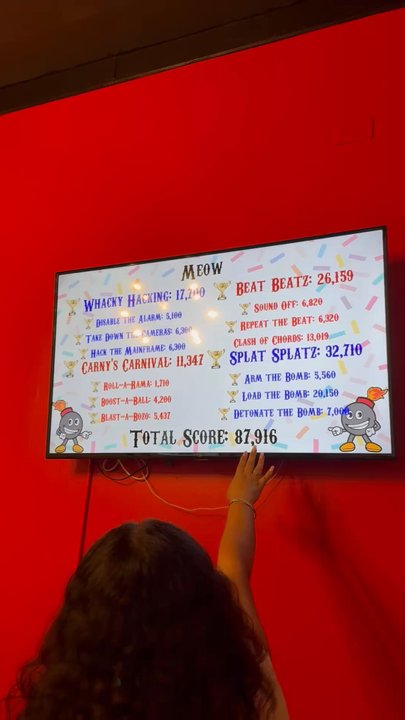 Meow
Whacky Hacking: 17,700
Disable the Alarm: 5,100
Take Down the Cameras: 6,300
Hack the Mainframe: 6,300
Carny's Carnival: 11,347
Roll-a-Rama: 1,710
Boost-a-Ball: 4,200
Blast-a-Bozo: 5,437
Beat Beatz: 26,159
Sound Off: 6,820
Repeat the Beat: 6,320
Clash of Chords: 13,019
Splat Splatz: 32,710
Arm the Bomb: 5,560
Load the Bomb: 20,150
Detonate the Bomb: 7,000
Total Score: 87,916